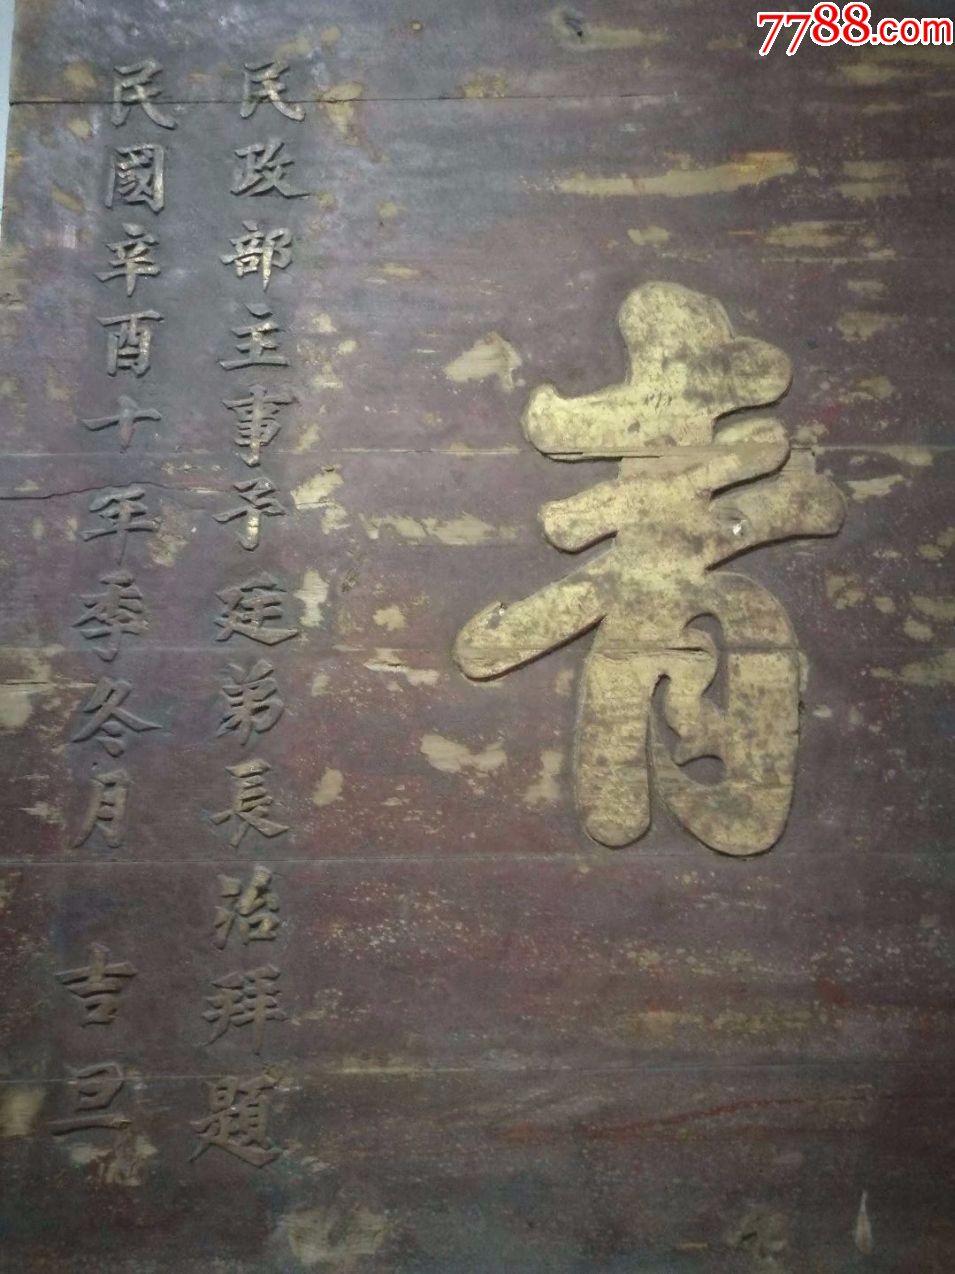 7788.com
青
民政部主事予廷弟長治拜題
民國辛酉十年季冬月 吉旦